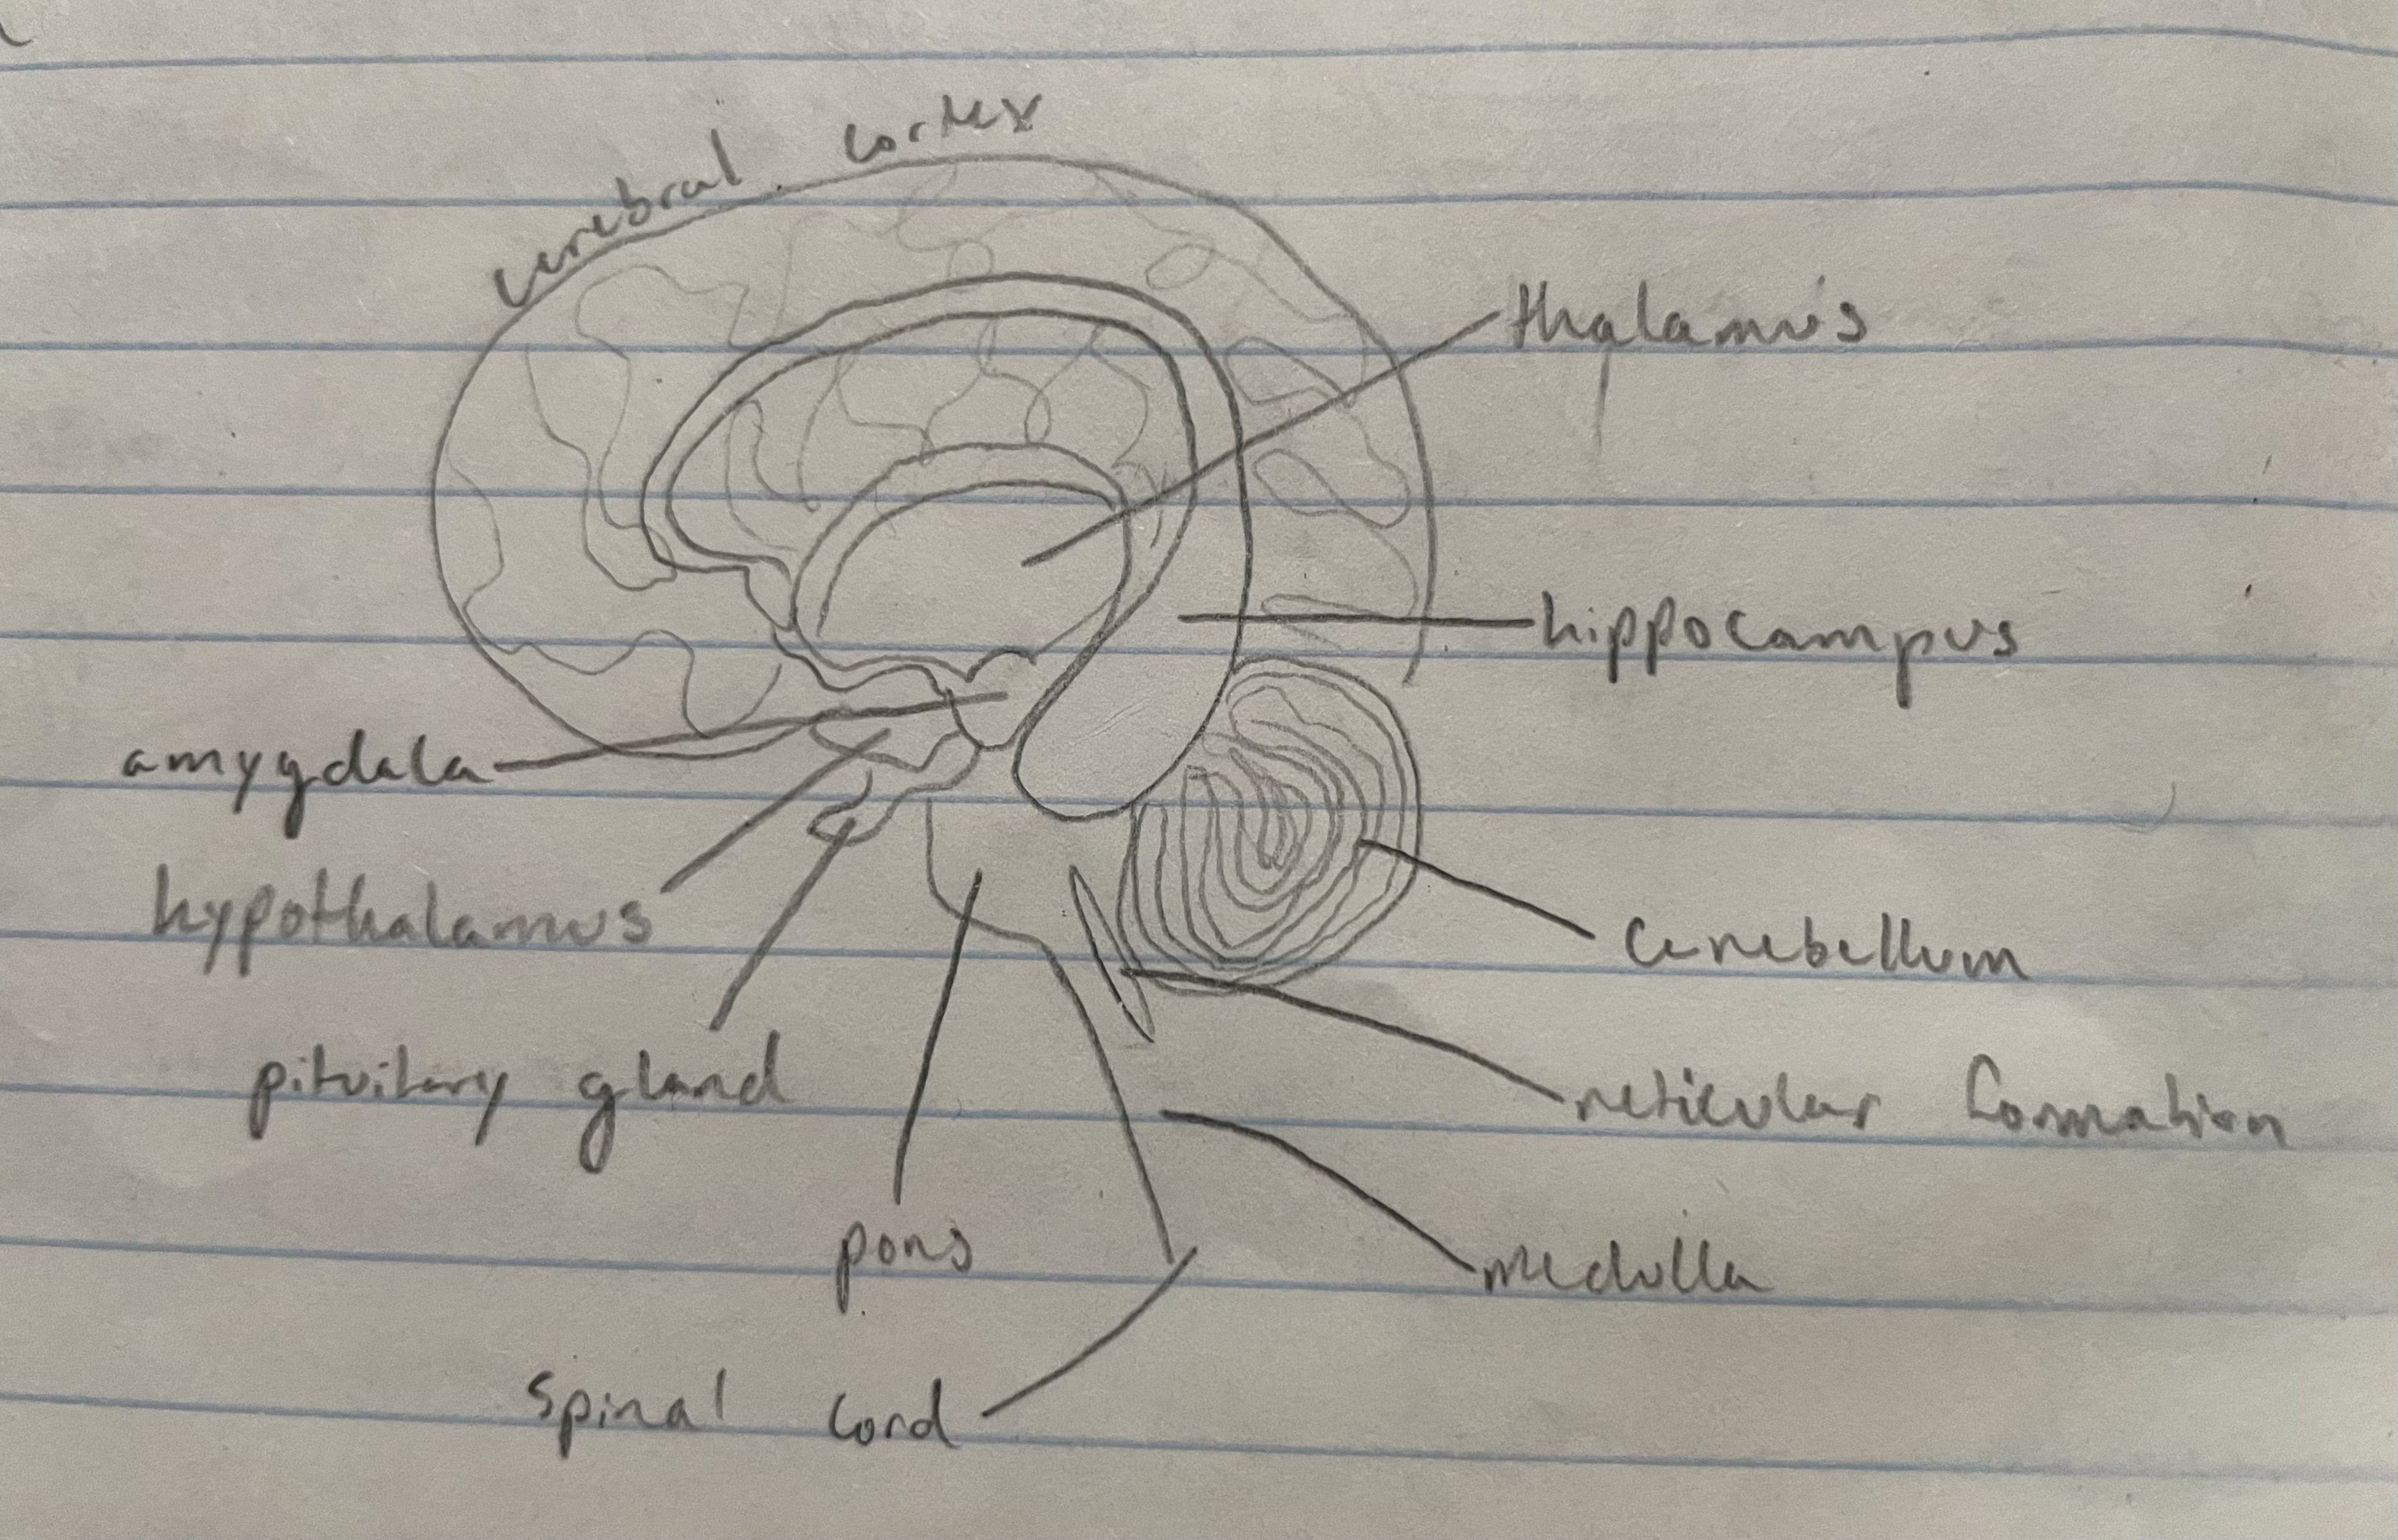 cerebral cortex
thalamus
hippocampus
amygdala
hypothalamus
cerebellum
pituitary gland
reticular formation
pons
medulla
spinal cord